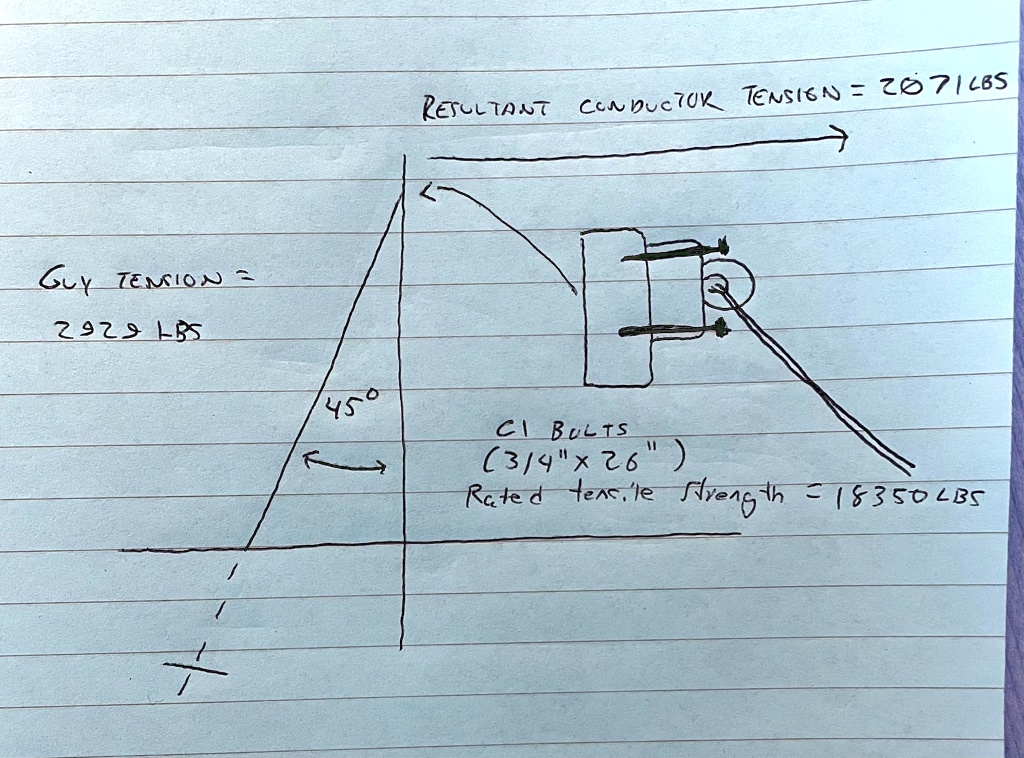 RESULTANT CONDUCTOR TENSION = 2071 LBS
GUY TENSION =
2929 LBS
45°
CI BOLTS
(3/4" x 26")
Rated tensile strength = 18350 LBS